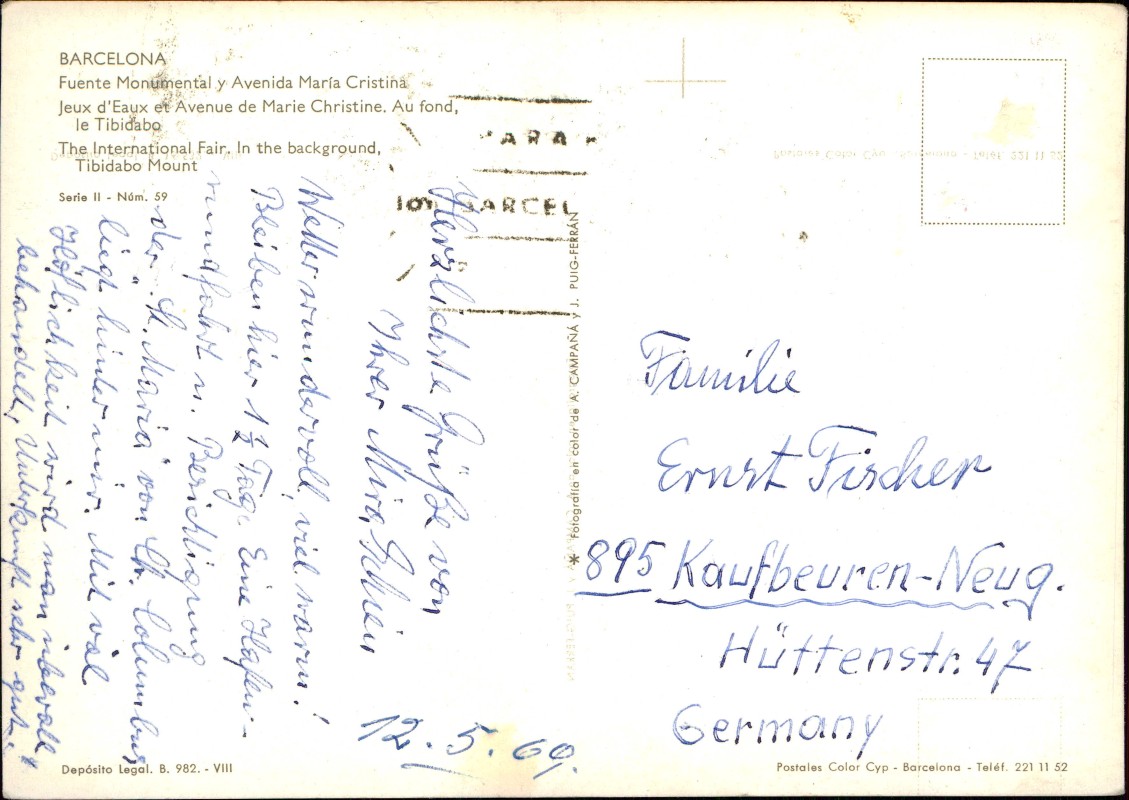 BARCELONA
Fuente Monumental y Avenida María Cristina
Jeux d'Eaux et Avenue de Marie Christine. Au fond,
le Tibidabo
The International Fair. In the background,
Tibidabo Mount
Serie II - Núm. 59
ARA
BARCEL
Herzlichste Grüße von
Ihrer
Wetter wundervoll, viel warm!
Bleiben hier 1 1/2 Tage. Eine Hafen-
rundfahrt u. Besichtigung
der "St. Maria" von Ch. Columbus
liegt hinter mir. Mit
Höflichkeit wird man überall
behandelt, Unterkunft sehr gut.
12.5.69.
* Fotografía en color de A. CAMPAÑÁ y J. PUIG-FERRÁN
Familie
Ernst Fischer
895 Kaufbeuren-Neug.
Hüttenstr. 47
Germany
Depósito Legal. B. 982. - VIII
Postales Color Cyp - Barcelona - Teléf. 221 11 52